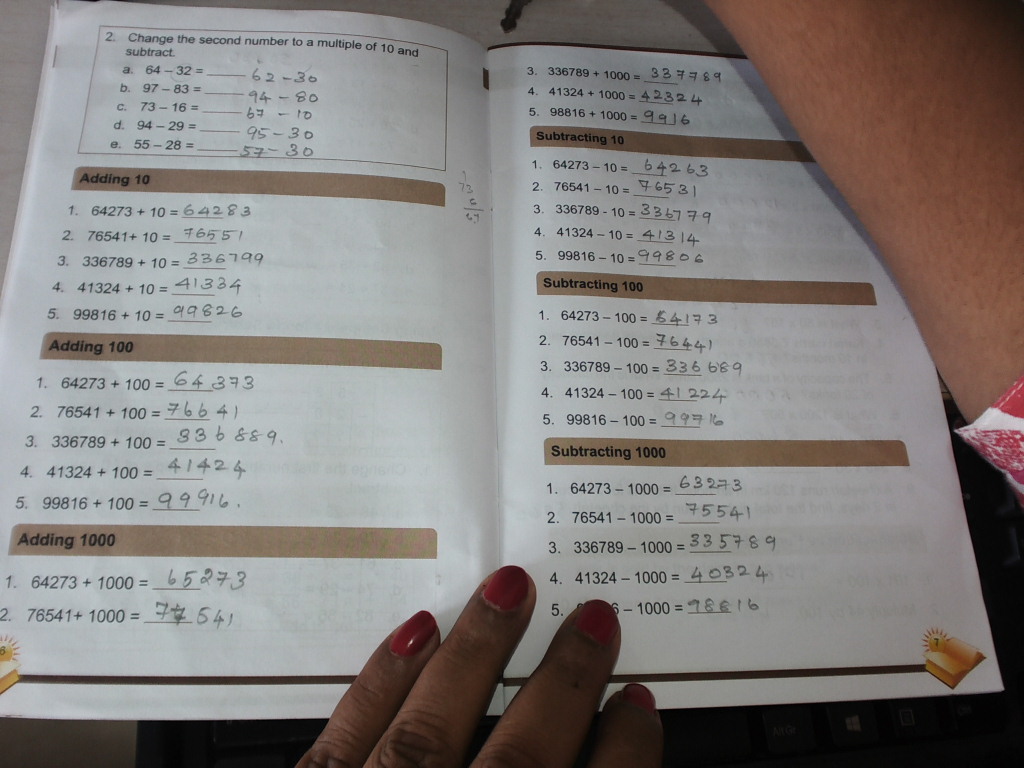 2. Change the second number to a multiple of 10 and
subtract.
a. 64 – 32 = 62 - 30
b. 97 – 83 = 94 - 80
c. 73 – 16 = 67 - 10
d. 94 – 29 = 95 - 30
e. 55 – 28 = 57 - 30
Adding 10
1. 64273 + 10 = 64283
2. 76541+ 10 = 76551
3. 336789 + 10 = 336799
4. 41324 + 10 = 41334
5. 99816 + 10 = 99826
Adding 100
1. 64273 + 100 = 64373
2. 76541 + 100 = 76641
3. 336789 + 100 = 336889.
4. 41324 + 100 = 41424
5. 99816 + 100 = 99916.
Adding 1000
1. 64273 + 1000 = 65273
2. 76541+ 1000 = 77541
6
73
6
67
3. 336789 + 1000 = 337789
4. 41324 + 1000 = 42324
5. 98816 + 1000 = 9916
Subtracting 10
1. 64273 – 10 = 64263
2. 76541 – 10 = 76531
3. 336789 - 10 = 336779
4. 41324 – 10 = 41314
5. 99816 – 10 = 99806
Subtracting 100
1. 64273 – 100 = 64173
2. 76541 – 100 = 76441
3. 336789 – 100 = 336689
4. 41324 – 100 = 41224
5. 99816 – 100 = 99716
Subtracting 1000
1. 64273 – 1000 = 63273
2. 76541 – 1000 = 75541
3. 336789 – 1000 = 335789
4. 41324 – 1000 = 40324
5. 6 – 1000 = 98816
7
Alt Gr